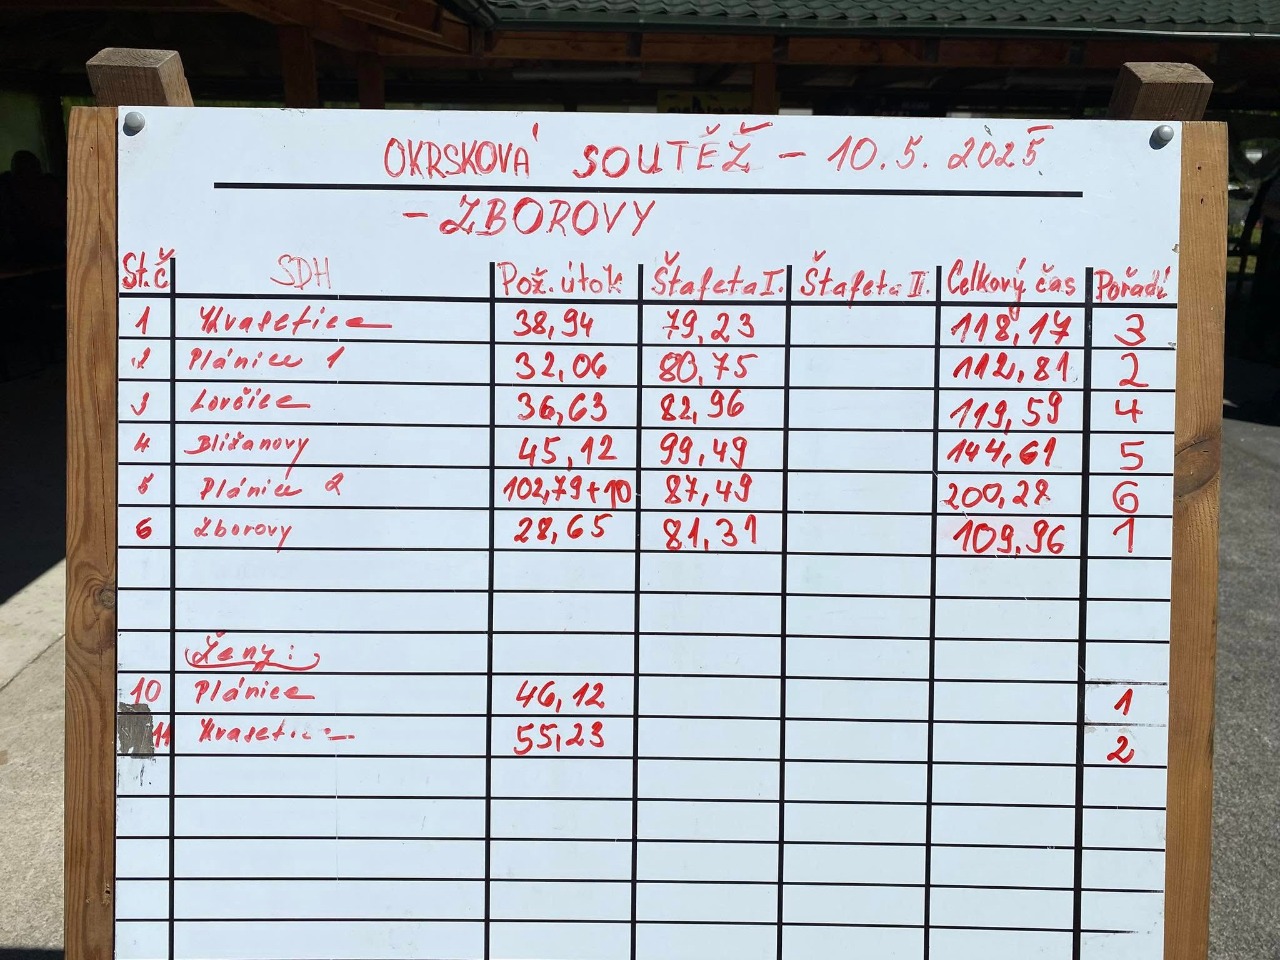 OKRSKOVÁ SOUTĚŽ - 10.5. 2025
- ZBOROVY
St.č SDH Pož. útok Štafeta I. Štafeta II. Celkový čas Pořadí
1 Kvasetice 38,94 79,23 118,17 3
2 Plánice 1 32,06 80,75 112,81 2
3 Lovčice 36,63 82,96 119,59 4
4 Bližanovy 45,12 99,49 144,61 5
5 Plánice 2 102,79+10 87,49 200,28 6
6 Zborovy 28,65 81,31 109,96 1
Ženy:
10 Plánice 46,12 1
11 Kvasetice 55,23 2